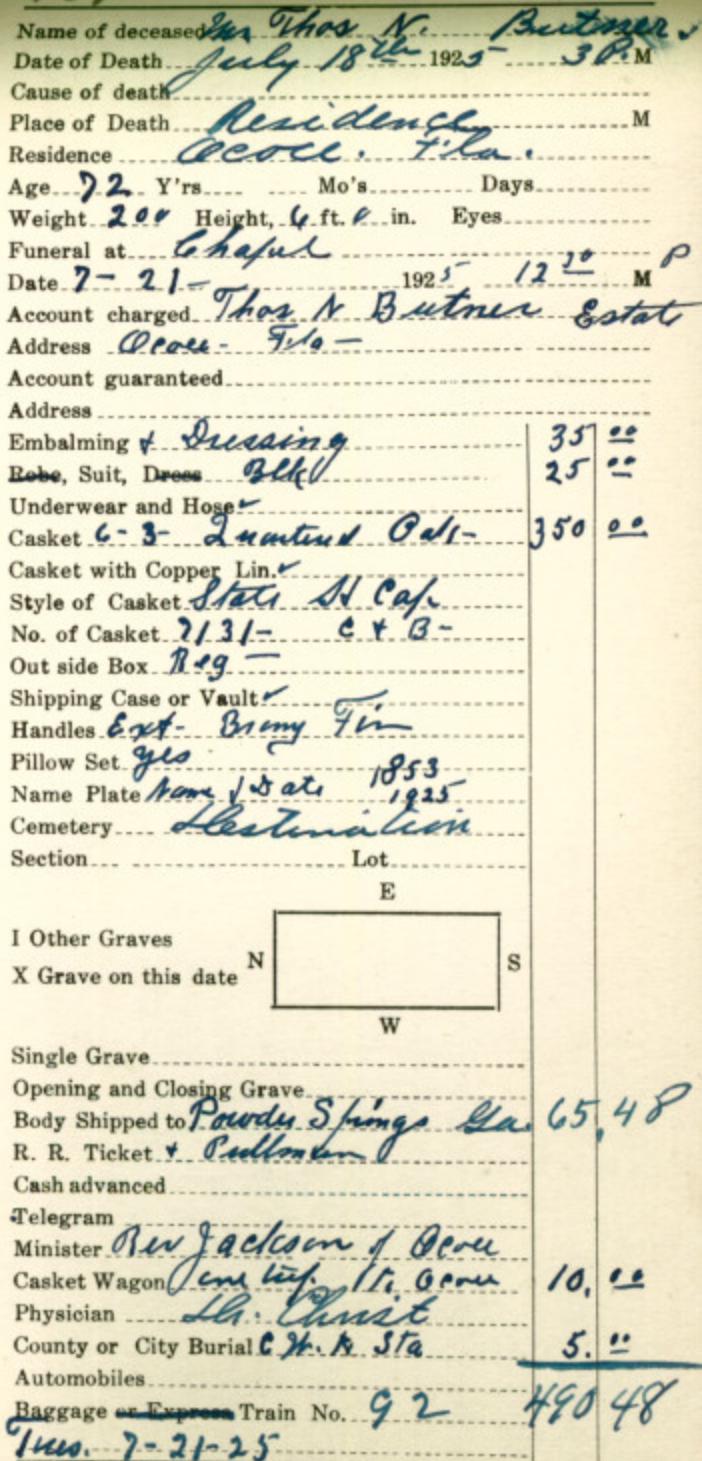 Name of deceased Mr Thos N. Butner
Date of Death July 18th 1925 3 P. M
Cause of death
Place of Death Residence M
Residence Ocoee. Fla.
Age 72 Y'rs Mo's Days
Weight 200 Height, 6 ft. 0 in. Eyes
Funeral at Chapel
Date 7-21- 1925 12 30 M P
Account charged Thos N Butner Estate
Address Ocoee- Fla-
Account guaranteed
Address
Embalming & Dressing 35 00
Robe, Suit, Dress Blk 25 00
Underwear and Hose ✓
Casket 6-3- Quartered Oak- 350 00
Casket with Copper Lin. ✓
Style of Casket State H Cap
No. of Casket 7131- C & B-
Out side Box Reg -
Shipping Case or Vault ✓
Handles Ext- Fin
Pillow Set yes
Name Plate Name & Date 1853 1925
Cemetery Destination
Section Lot
E
I Other Graves
X Grave on this date N S
W
Single Grave
Opening and Closing Grave
Body Shipped to Powder Springs Ga. 65,48
R. R. Ticket & Pullman
Cash advanced
Telegram
Minister Rev Jackson of Ocoee
Casket Wagon one trip Ocoee 10, 00
Physician Dr. Christ
County or City Burial Sta 5. 00
Automobiles
Baggage or Express Train No. 92 490 48
Tues. 7-21-25